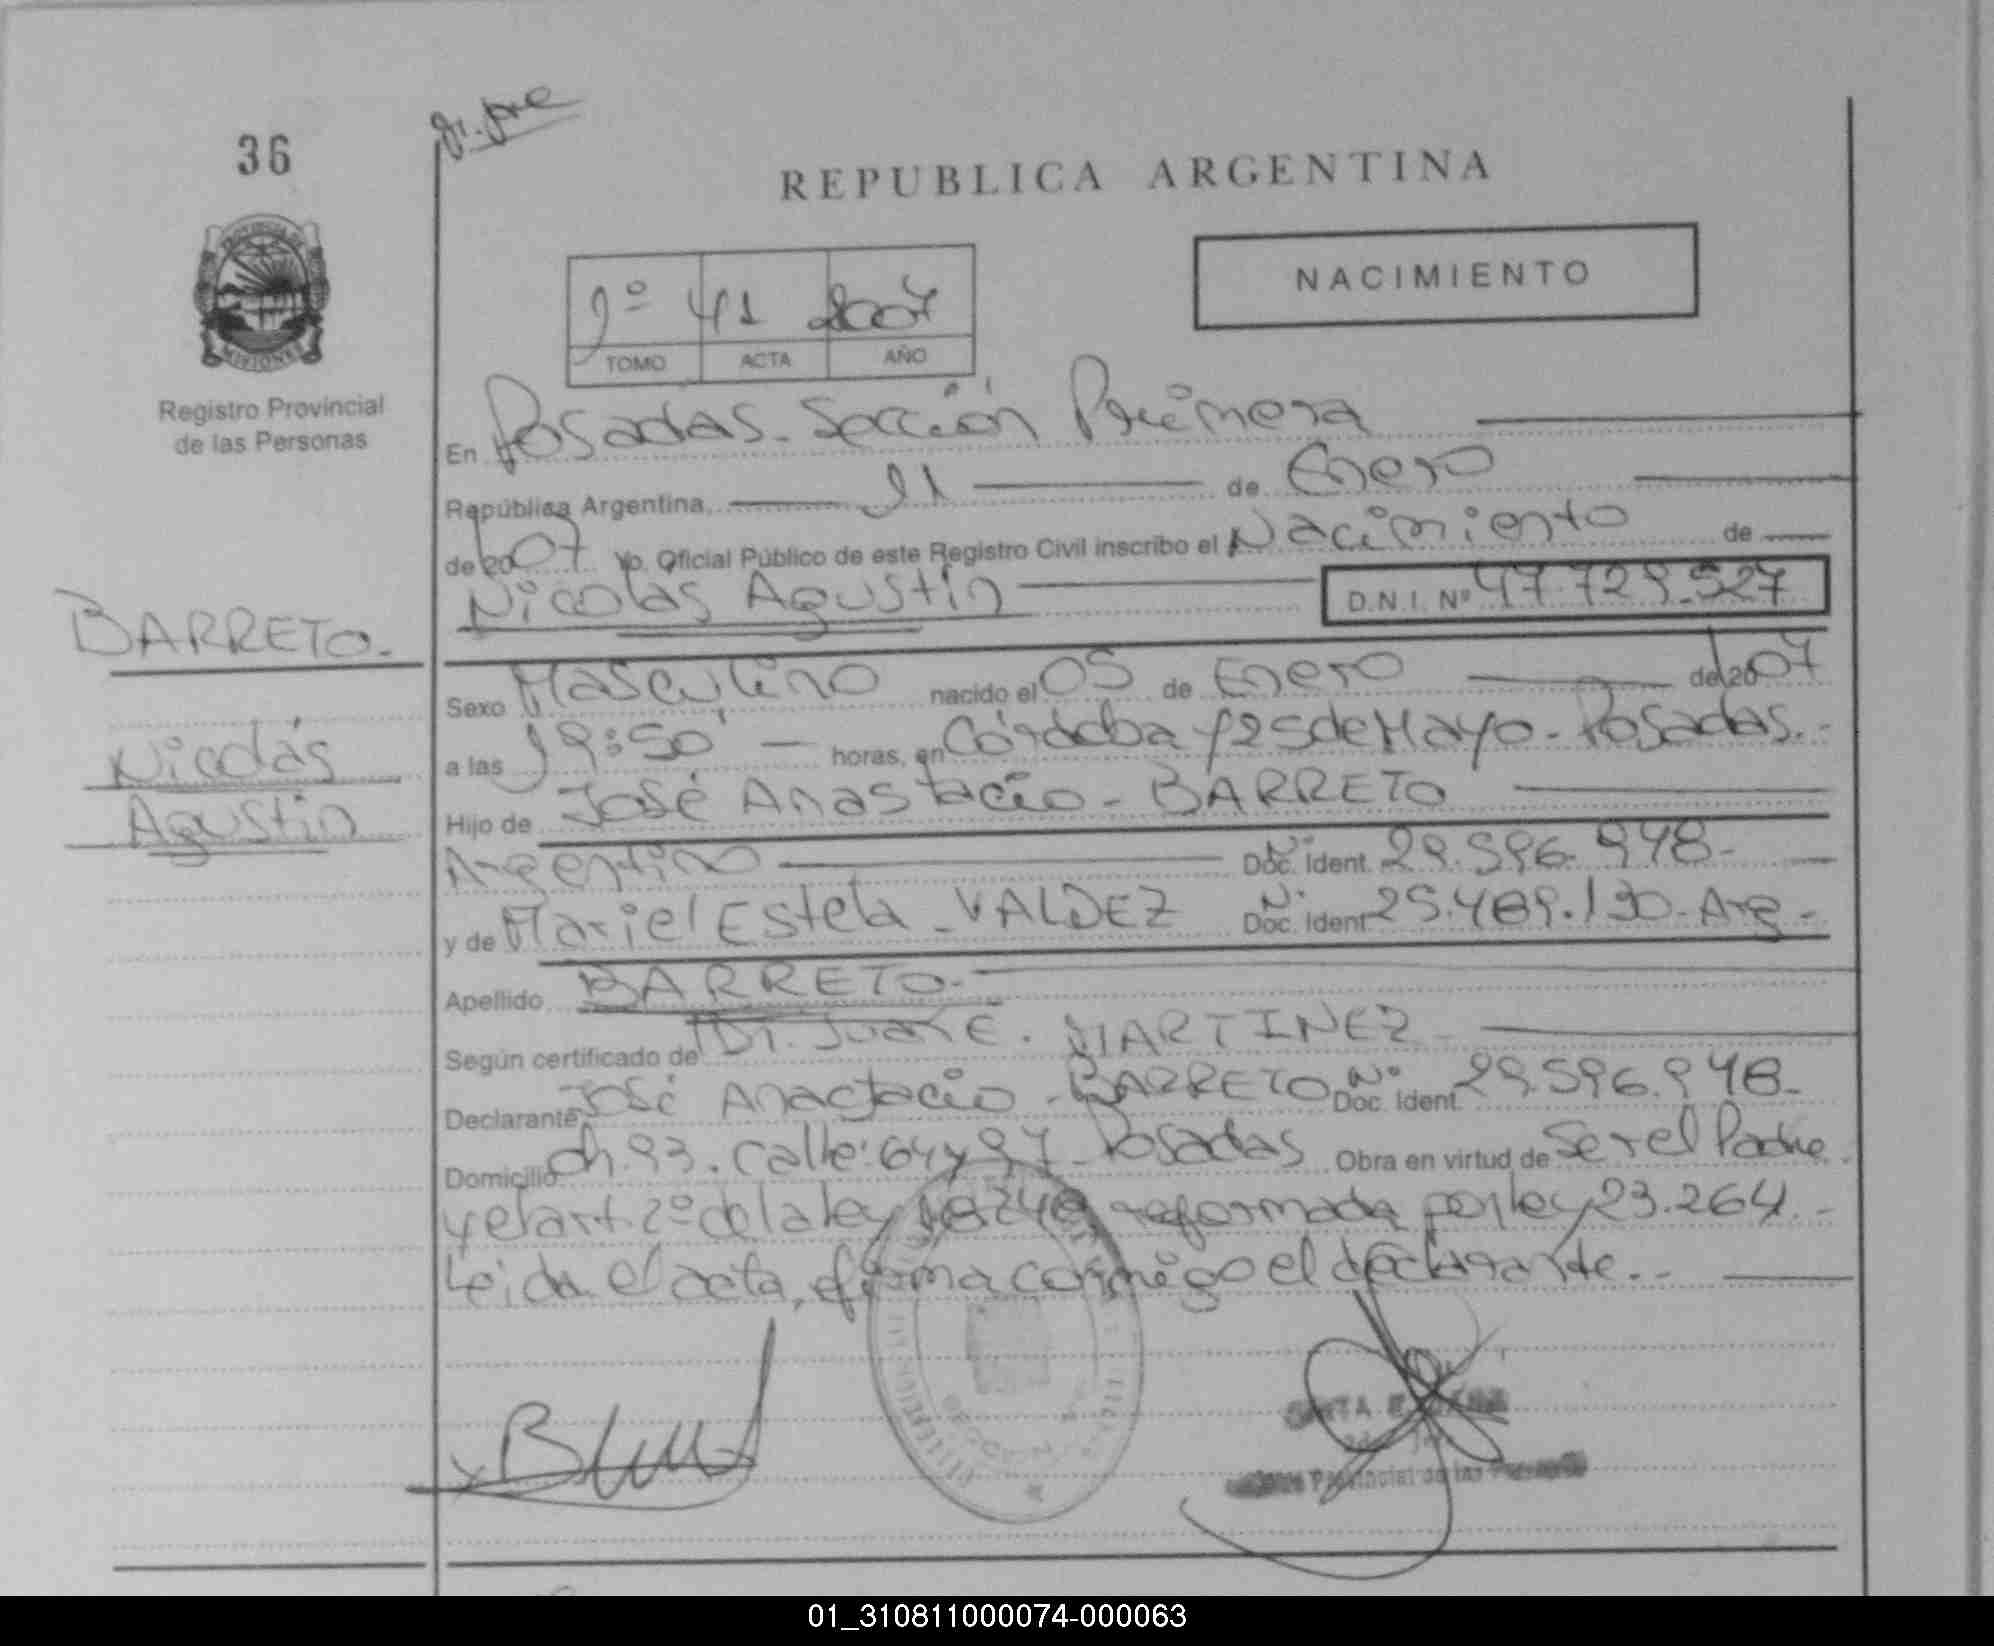 36
REPUBLICA ARGENTINA
PROVINCIA DE
MISIONES
Registro Provincial
de las Personas
NACIMIENTO
1º 41 2007
TOMO ACTA AÑO
En Posadas. Sección Primera
República Argentina, 11 de Enero
de 2007 Yo, Oficial Público de este Registro Civil inscribo el Nacimiento de
Nicolás Agustín D.N.I. Nº 47.729.527
BARRETO.
Nicolás
Agustín
Sexo Masculino nacido el 05 de Enero de 2007
a las 19:50' horas, en Córdoba y 25 de Mayo - Posadas.-
Hijo de José Anastacio - BARRETO
Argentino Nº Doc. Ident. 29.596.948-
y de Mariel Estela - VALDEZ Nº Doc. Ident. 25.489.130-Arg-
Apellido BARRETO-
Según certificado de Dr. Juan E. MARTINEZ
Declarante José Anastacio - BARRETO Nº Doc. Ident. 29.596.948-
Domicilio ch. 93. calle: 64 y 97 - Posadas Obra en virtud de Ser el Padre
y el art. 2º de la ley 18248 reformada por ley 23.264.-
Leida el acta, firma conmigo el declarante.-
Provincial de las
01_310811000074-000063